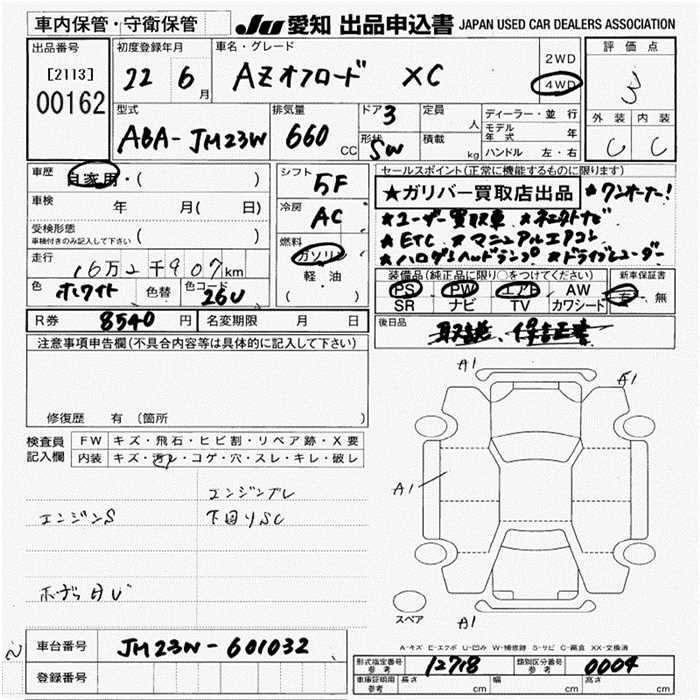 車内保管・守衛保管 JU 愛知 出品申込書 JAPAN USED CAR DEALERS ASSOCIATION
出品番号 初度登録年月 車名・グレード 評価点
[2113] 22 6月 AZオフロード XC 2WD 4WD 3
00162
型式 排気量 ドア 3 定員 人 ディーラー・並行 外装 内装
ABA-JM23W 660 CC 形状 SW 積載 kg モデル年式 年 C C
ハンドル 左・右
車歴 自家用・( ) シフト 5F セールスポイント(正常に機能するものに限ります)
★ガリバー買取店出品 ★ワンオーナー!
車検 年 月( 日) 冷房 AC ★ユーザー買取車 ★社外ナビ
受検形態 ( ) ★ETC ★マニュアルエアコン
車検付きのみ記入して下さい 燃料 ★ハロゲンヘッドランプ ★ドライブレコーダー
走行 16万2千907km ガソリン 装備品(純正品に限り○をつけてください) 新車保証書
軽・油 PS PW エアB AW 有・無
色 ホワイト 色替 色コード 26U ( ) SR ナビ TV カワシート
R券 8540円 名変期限 月 日 後日品 取説、保証書
注意事項申告欄(不具合内容等は具体的に記入して下さい)
A1 A1
修復歴 有 (箇所
検査員 FW キズ・飛石・ヒビ割・リペア跡・X要
記入欄 内装 キズ・汚レ・コゲ・穴・スレ・キレ・破レ
A1
エンジンブレ
エンジンS 下回りSC
スペア
A1
A-キズ E-エクボ U-凹み W-補修跡 S-サビ C-腐食 XX-交換済
車台番号 JM23W-601032
型式指定番号 参考 12718 類別区分番号 参考 0004
登録番号 車庫証明用 参考 長さ cm 幅 cm 高さ cm